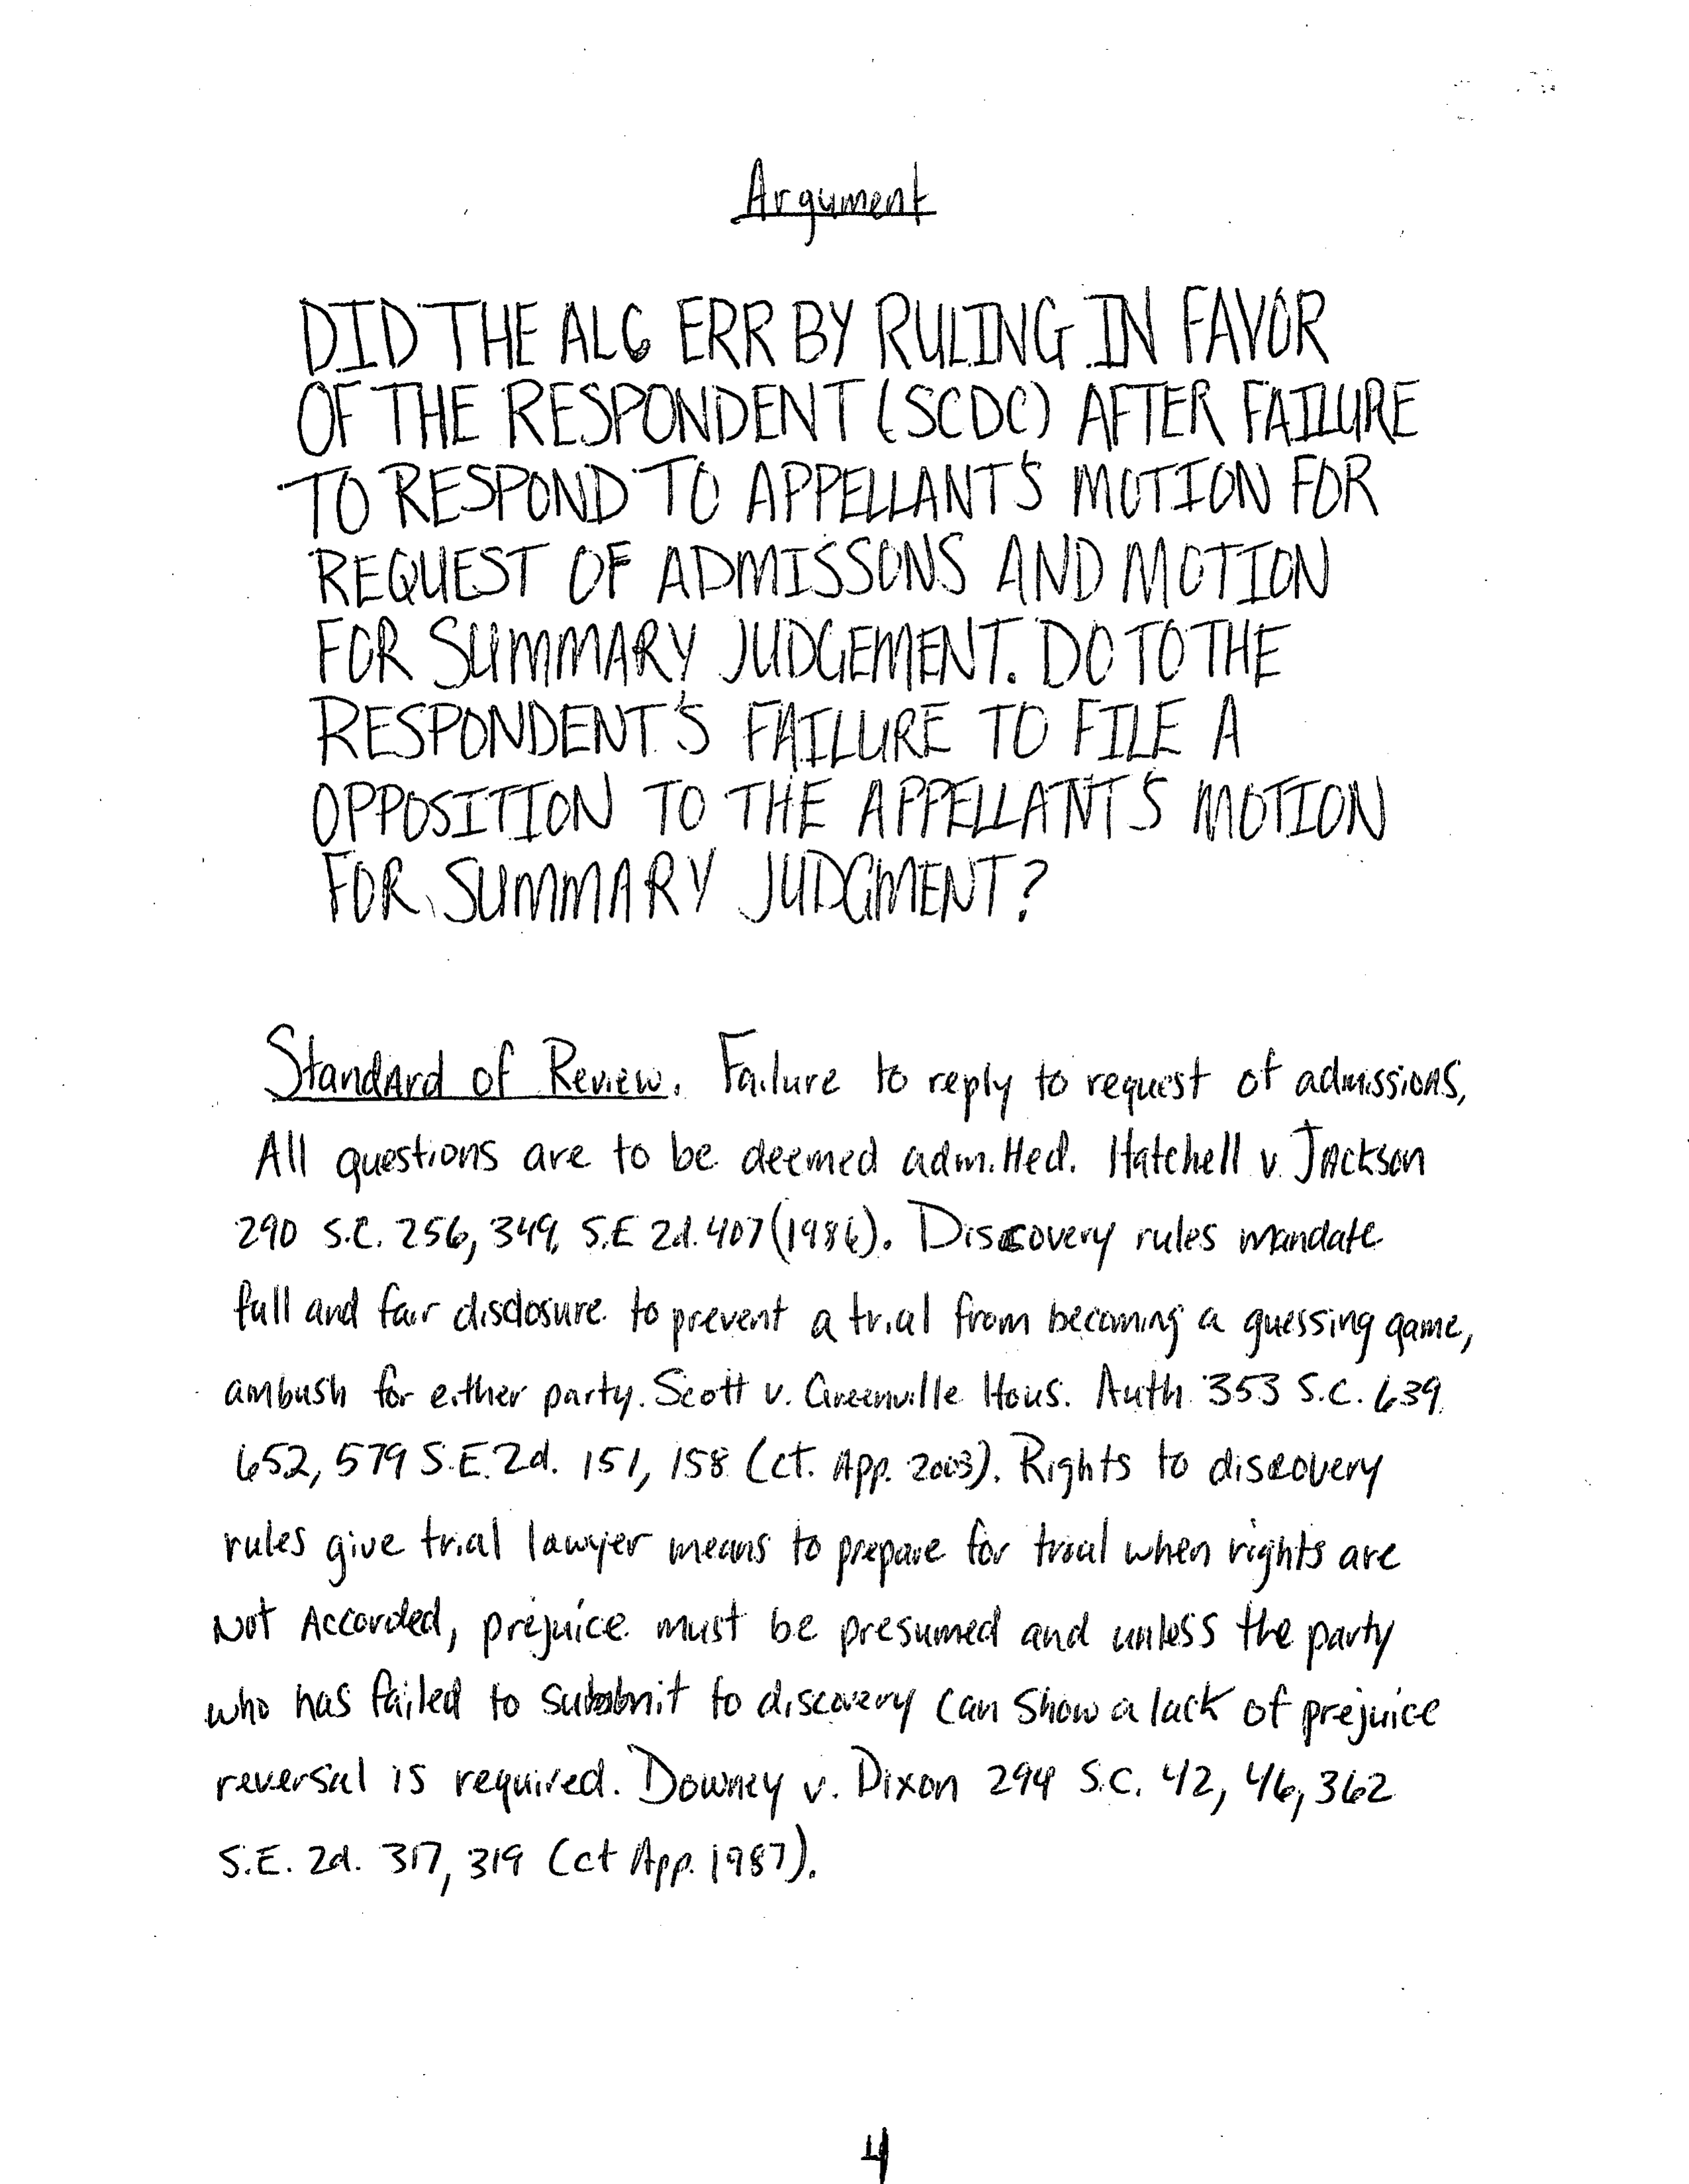 Argument
DID THE ALC ERR BY RULING IN FAVOR
OF THE RESPONDENT (SCDC) AFTER FAILURE
TO RESPOND TO APPELLANT'S MOTION FOR
REQUEST OF ADMISSONS AND MOTION
FOR SUMMARY JUDGEMENT. DO TO THE
RESPONDENT'S FAILURE TO FILE A
OPPOSITION TO THE APPELLANT'S MOTION
FOR SUMMARY JUDGMENT?
Standard of Review. Failure to reply to request of admissions,
All questions are to be deemed admitted. Hatchell v. Jackson
290 S.C. 256, 349, S.E 2d. 407 (1986). Discovery rules mandate
full and fair disclosure to prevent a trial from becoming a guessing game,
ambush for either party. Scott v. Greenville Hous. Auth. 353 S.C. 639
652, 579 S.E. 2d. 151, 158 (ct. App. 2003). Rights to discovery
rules give trial lawyer means to prepare for trial when rights are
Not Accorded, prejuice must be presumed and unless the party
who has failed to submit to discovery can show a lack of prejuice
reversal is required. Downey v. Dixon 294 S.C. 42, 46, 362
S.E. 2d. 317, 319 (ct App. 1987).
4